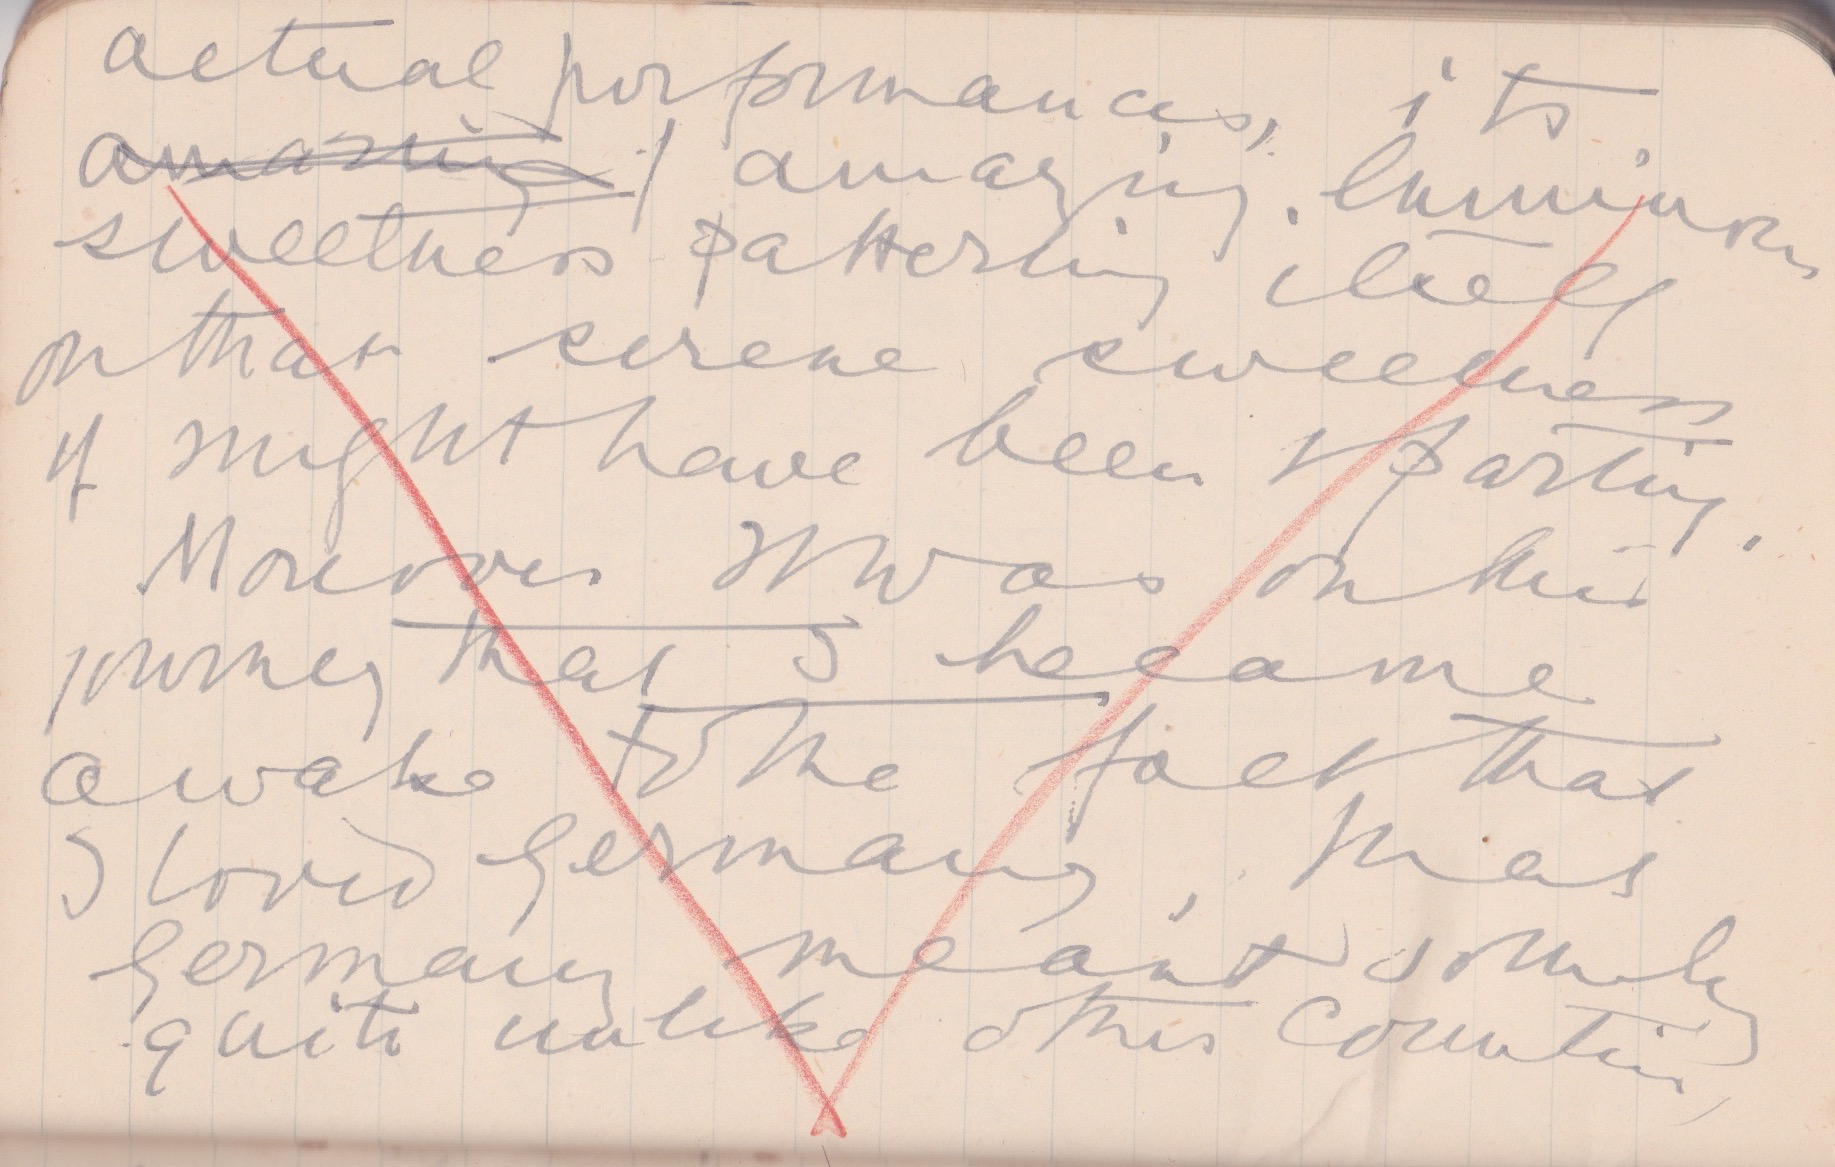 actual performances, its
amazing / amazing, luminous
sweetness patterning itself
on that serene sweetness
of might have been & parting.
Moreover it was on this
journey that I became
awake to the fact that
I loved Germany, that
Germany meant something
quite unlike other countries,